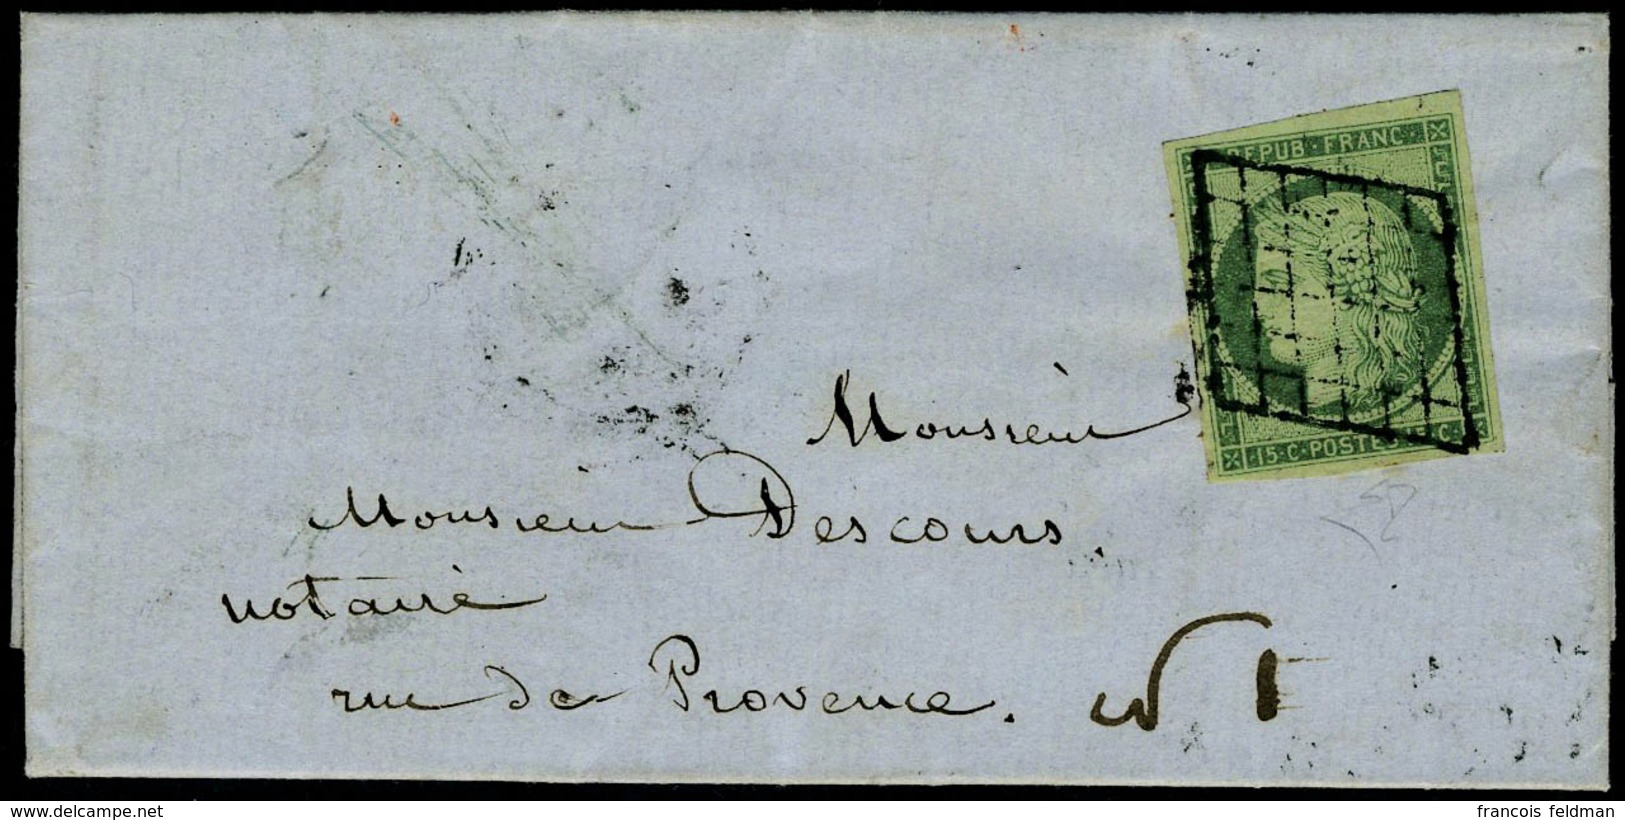 REPUB·FRANC·
·15·C·POSTES 15·C·
Monsieur
Monsieur Descours.
notaire
rue de Provence. n° 1
delcampe.net
francois feldman